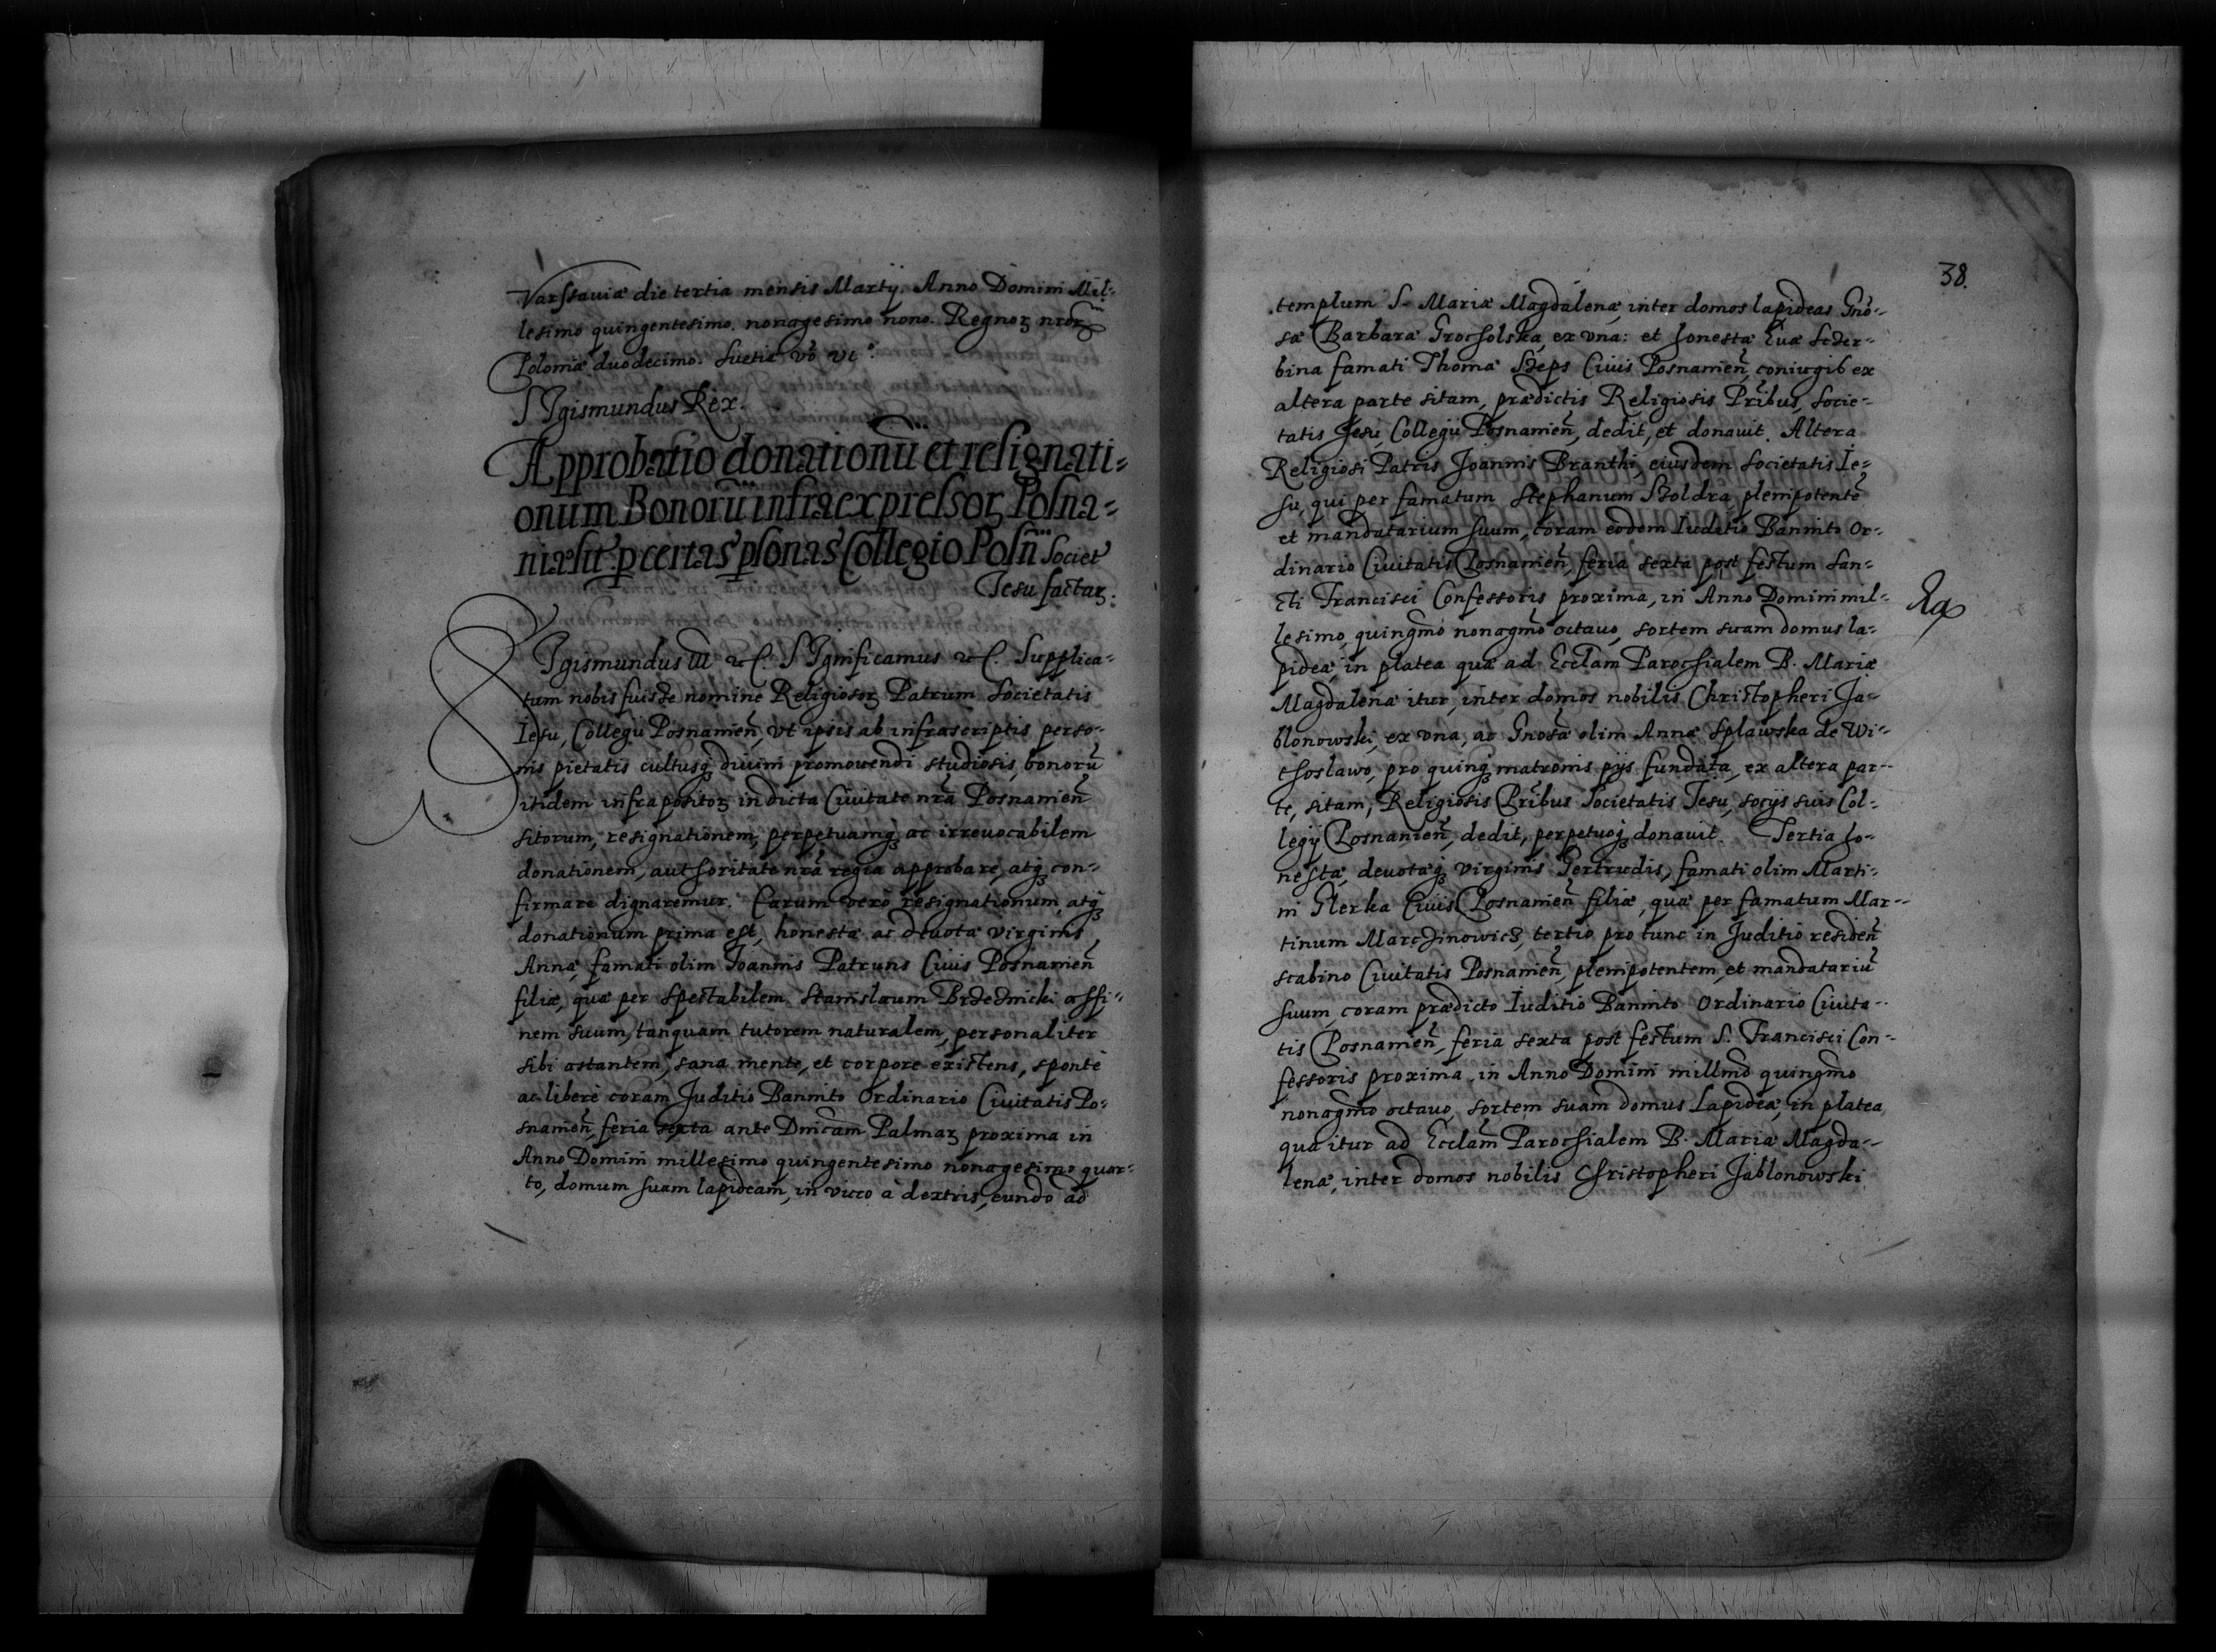 Varssauiæ die tertia mensis Martij. Anno Domini Mil-
lesimo quingentesimo. nonagesimo nono. Regnoꝝ nroꝝ
Poloniæ duodecimo. Suetiæ vō vtº.
SIgismundus Rex.
Approbatio donationū et resignati-
onum Bonorū infra expressoꝝ Posna-
niæ sit. ꝑ certas ꝑsonas Collegio Posn̄ Societ
Jesu factaꝝ.
SIgismundus III etc. SIgnificamus etc. Supplica-
tum nobis fuisse nomine Religiosoꝝ Patrum Societatis
Iesu, Collegij Posnanien̄, vt ipsis ab infrascriptis perso-
nis pietatis cultusq́ꝫ diuini promouendi studiosis, bonorū
itidem infrapositoꝝ in dicta Ciuitate nrā Posnanien̄
sitorum, resignationem, perpetuamq́ꝫ ac irreuocabilem
donationem, authoritate nrā regia approbare, atqꝫ con-
firmare dignaremur. Earum verò resignationum, atqꝫ
donationum prima est, honestæ ac deuotæ virginis,
Annæ, famati olim Joannis Patruns Ciuis Posnanien̄
filiæ, quæ per Spectabilem Stanislaum Brzeznicki affi-
nem suum, tanquam tutorem naturalem, personaliter
sibi astantem, sana mente, et corpore existens, sponte
ac liberè coram Juditio Bannito Ordinario Ciuitatis Po-
snanien̄, feria sexta ante Dnicam Palmaꝝ proxima in
Anno Domini millesimo quingentesimo nonagesimo quar-
to, domum suam lapideam, in vico à dextris, eundo ad
38.
templum S. Mariæ Magdalenæ, inter domos lapideas Gnō-
sæ Barbaræ Grocholska, ex vna: et honestæ Euæ Sczer-
bina famati Thomæ Szeps Ciuis Posnanien̄, coniugis ex
altera parte sitam, prædictis Religiosis Pribus, Socie-
tatis Jesu, Collegij Posnanien̄, dedit, et donauit. Altera
Religiosi Patris Joannis Branthi, eiusdem Societatis Ie-
su, qui per famatum Stephanum Szoldra, plenipotentē
et mandatarium suum, coram eodem Iuditio Bannito Or-
dinario Ciuitatis Posnanien̄, feria sexta post festum San-
cti Francisci Confessoris proxima, in Anno Domini mil-
lesimo, quingmo nonagmo octauo, sortem suam domus la-
pideæ, in platea quæ ad Ecclam Parochialem B. Mariæ
Magdalenæ itur, inter domos nobilis Christopheri Ja-
blonowski, ex vna, ac Gnosæ olim Annæ Splawska de Wi-
thoslawo, pro quinqꝫ matronis pijs fundata, ex altera par-
te, sitam, Religiosis Pribus Societatis Jesu, socijs suis Col-
legij Posnanien̄, dedit, perpetuoqꝫ donauit. Tertia, ho-
nestæ, deuotæqꝫ virginis Gertrudis, famati olim Marti-
ni Gierka Ciuis Posnanien̄ filiæ, quæ per famatum Mar-
tinum Marczinowicz, tertio pro tunc in Juditio residen̄
scabino Ciuitatis Posnanien̄, plenipotentem, et mandatariū
suum, coram prædicto Iuditio Bannito Ordinario Ciuita-
tis Posnanien̄, feria sexta post festum S. Francisci Con-
fessoris proxima, in Anno Domini millmo quingmo
nonagmo octauo, sortem suam domus Lapideæ, in platea
qua itur ad Ecclam Parochialem B. Mariæ Magda-
lenæ, inter domos nobilis Christopheri Jablonowski